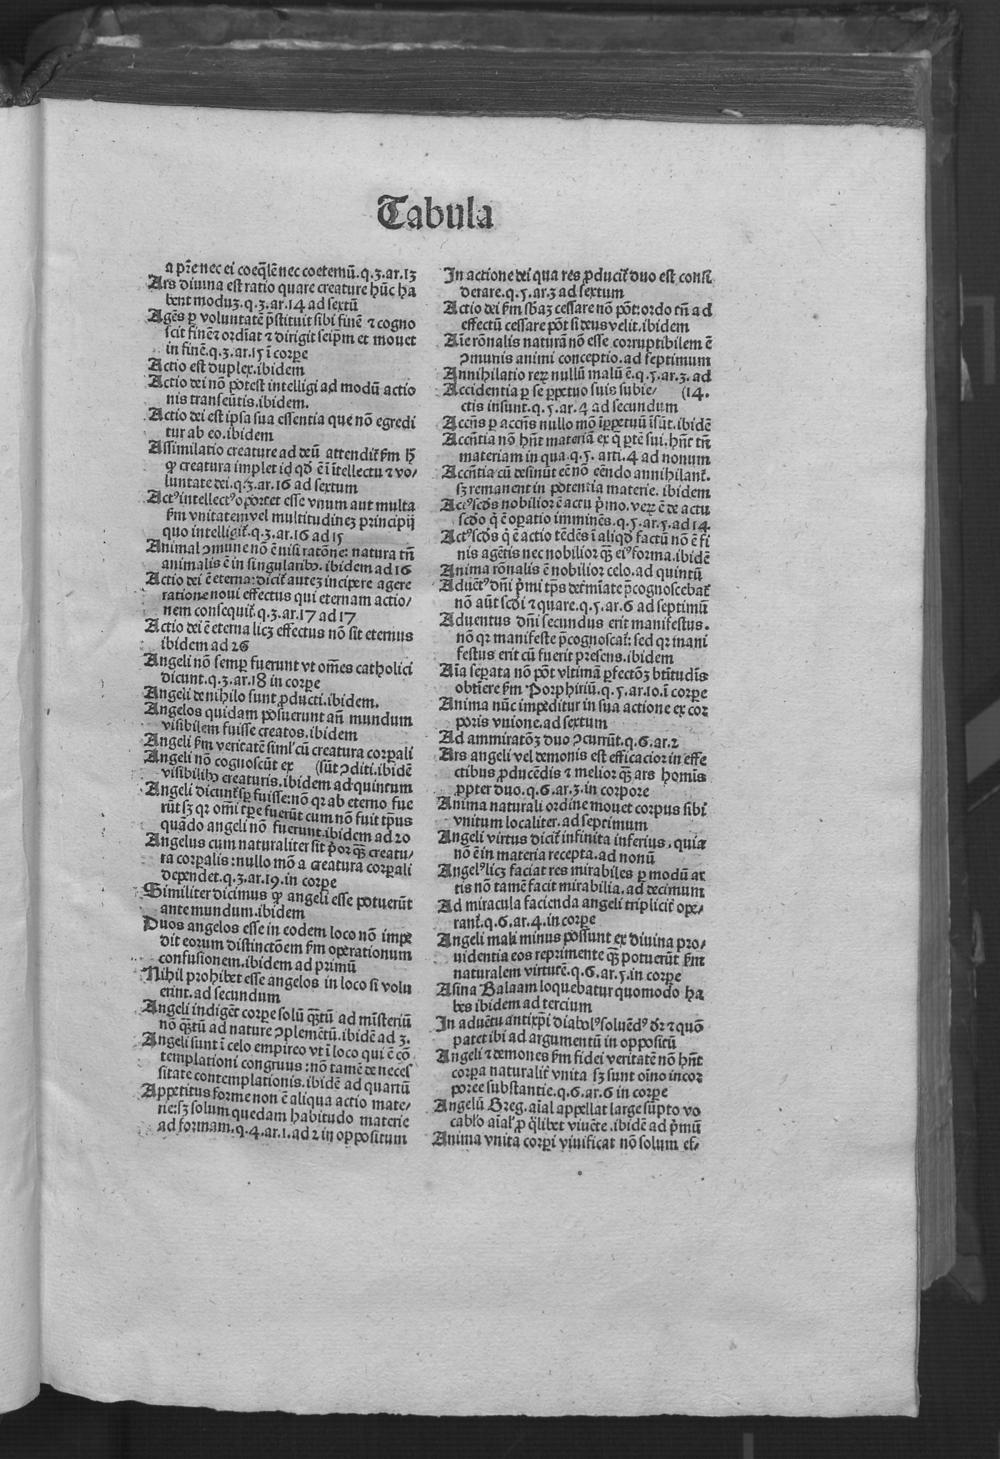 Tabula
a pr̄e nec ei coeq̄lē nec coeternū.q.3.ar.13
Ars diuina est ratio quare creature hūc ha
bent moduꝫ.q.3.ar.14 ad sextū
Agēs ꝑ voluntatē p̄stituit sibi finē ⁊ cogno
scit finē ⁊ ordīat ⁊ dirigit seip̄m et mouet
in finē.q.3.ar.15 ī corꝑe
Actio est duplex.ibidem
Actio dei nō potest intelligi ad modū actio
nis transeūtis.ibidem.
Actio dei est ipsa sua essentia que nō egredi
tur ab eo.ibidem
Assimilatio creature ad deū attendit̄ ẜm ħ
ꝙ creatura implet id qd̄ ē ī ītellectu ⁊ vo⸗
luntate dei.q.3.ar.16 ad sextum
Actꝰ intellectꝰ oportet esse vnum aut multa
ẜm vnitatem vel multitudineꝫ principij
quo intelligit̄.q.3.ar.16 ad 15
Animal ꝯmune nō ē nisi ratōne: natura tn̄
animalis ē in singularibꝰ.ibidem ad 16
Actio dei ē eterna: dicit̄ auteꝫ incipere agere
ratione noui effectus qui eternam actio⸗
nem consequit̄.q.3.ar.17 ad 17
Actio dei ē eterna licꝫ effectus nō sit eternus
ibidem ad 26
Angeli nō semꝑ fuerunt vt om̄es catholici
dicunt.q.3.ar.18 in corꝑe
Angeli de nihilo sunt ꝓducti.ibidem.
Angelos quidam posuerunt an̄ mundum
visibilem fuisse creatos.ibidem
Angeli ẜm veritatē siml̓ cū creatura corꝑali
Angeli nō cognoscūt ex (sūt ꝯditi.ibidē
visibilibꝰ creaturis.ibidem ad quintum
Angeli dicunt̄ sꝑ fuisse: nō qꝛ ab eterno fue
rūt sꝫ qꝛ om̄i tꝑe fuerūt cum nō fuit tp̄us
quādo angeli nō fuerunt.ibidem ad 20
Angelus cum naturaliter sit p̄or q̄ꝫ creatu⸗
ra corꝑalis: nullo mō a creatura corꝑali
dependet.q.3.ar.19.in corꝑe
Similiter dicimus ꝙ angeli esse potuerūt
ante mundum.ibidem
Duos angelos esse in eodem loco nō impe
dit eorum distinctōem ẜm operationum
confusionem.ibidem ad primū
Nihil prohibet esse angelos in loco si volu
erint.ad secundum
Angeli indigēt corꝑe solū q̄ꝫtū ad mīsteriū
nō q̄ꝫtū ad nature ꝯplemētū.ibidē ad 3.
Angeli sunt ī celo empireo vt ī loco qui ē cō
templationi congruus: nō tamē de neces
sitate contemplationis.ibidē ad quartū
Appetitus forme non ē aliqua actio mate⸗
rie: sꝫ solum quedam habitudo materie
ad formam.q.4.ar.1.ad 2 in oppositum
In actione dei qua res ꝓducit̄ duo est consi
derare.q.5.ar.3 ad sextum
Actio dei ẜm sb̄aꝫ cessare nō pōt: ordo tn̄ ad
effectū cessare pōt si deus velit.ibidem
Aīe rōnalis naturā nō esse corruptibilem ē
ꝯmunis animi conceptio.ad septimum
Annihilatio reꝝ nullū malū ē.q.5.ar.3.ad
Accidentia ꝑ se ꝑpetuo suis subie⸗ (14.
ctis insunt.q.5.ar.4 ad secundum
Accn̄s ꝑ accn̄s nullo mō īꝑpetuū īsūt.ibidē
Accn̄tia nō hn̄t materiā ex q̄ ꝑtē sui.hn̄t tn̄
materiam in qua.q.5.arti.4 ad nonum
Accn̄tia cū desinūt eē nō eēndo annihilant̄.
sꝫ remanent in potentia materie.ibidem
Actꝰ scd̄s nobilior ē actu p̄mo.veꝝ ē de actu
scd̄o q̇ ē oꝑatio imminēs.q.5.ar.5.ad 14.
Actꝰ scd̄s q̇ ē actio tēdēs ī aliqd̄ factū nō ē fi
nis agētis nec nobilior q̄ꝫ eiꝰ forma.ibidē
Anima rōnalis ē nobilior celo.ad quintū
Aduētꝰ dn̄i p̄mi tp̄s det̄mīate p̄cognoscebat̄
nō aūt scd̄i ⁊ quare.q.5.ar.6 ad septimū
Aduentus dn̄i secundus erit manifestus.
nō qꝛ manifeste p̄cognoscat̄: sed qꝛ mani
festus erit cū fuerit presens.ibidem
Aīa seꝑata nō pōt vltimā ꝑfectōꝫ btitudīs
obtīere ẜm Porphiriū.q.5.ar.10.ī corꝑe
Anima nūc impeditur in sua actione ex cor
poris vnione.ad sextum
Ad ammiratōꝫ duo ꝯcurrūt.q.6.ar.2
Ars angeli vel demonis est efficacior in effe
ctibus ꝓducēdis ⁊ melior q̄ꝫ ars homīs
ꝓpter duo.q.6.ar.3.in corpore
Anima naturali ordine mouet corpus sibi
vnitum localiter.ad septimum
Angeli virtus dicit̄ infinita inferius.quia
nō ē in materia recepta.ad nonū
Angelꝰ licꝫ faciat res mirabiles ꝑ modū ar
tis nō tamē facit mirabilia.ad decimum
Ad miracula facienda angeli triplicit̄ ope⸗
rant̄.q.6.ar.4.in corꝑe
Angeli mali minus possunt ex diuina pro⸗
uidentia eos reprimente q̄ꝫ potuerūt ẜm
naturalem virtutē.q.6.ar.5.in corꝑe
Asina Balaam loquebatur quomodo ha
bes ibidem ad tercium
In aduētu antixp̄i diabolꝰ soluēdꝰ dr̄ ⁊ quō
patet ibi ad argumentū in oppositū
Angeli ⁊ demones ẜm fidei veritatē nō hn̄t
corꝑa naturalit̄ vnita sꝫ sunt oīno incor
poree substantie.q.6.ar.6 in corꝑe
Angelū Greg.aīal appellat large sūpto vo
cabl̓o aīal̓ ꝓ q̄libet viuēte.ibidē ad p̄mū
Anima vnita corꝑi viuificat nō solum ef⸗